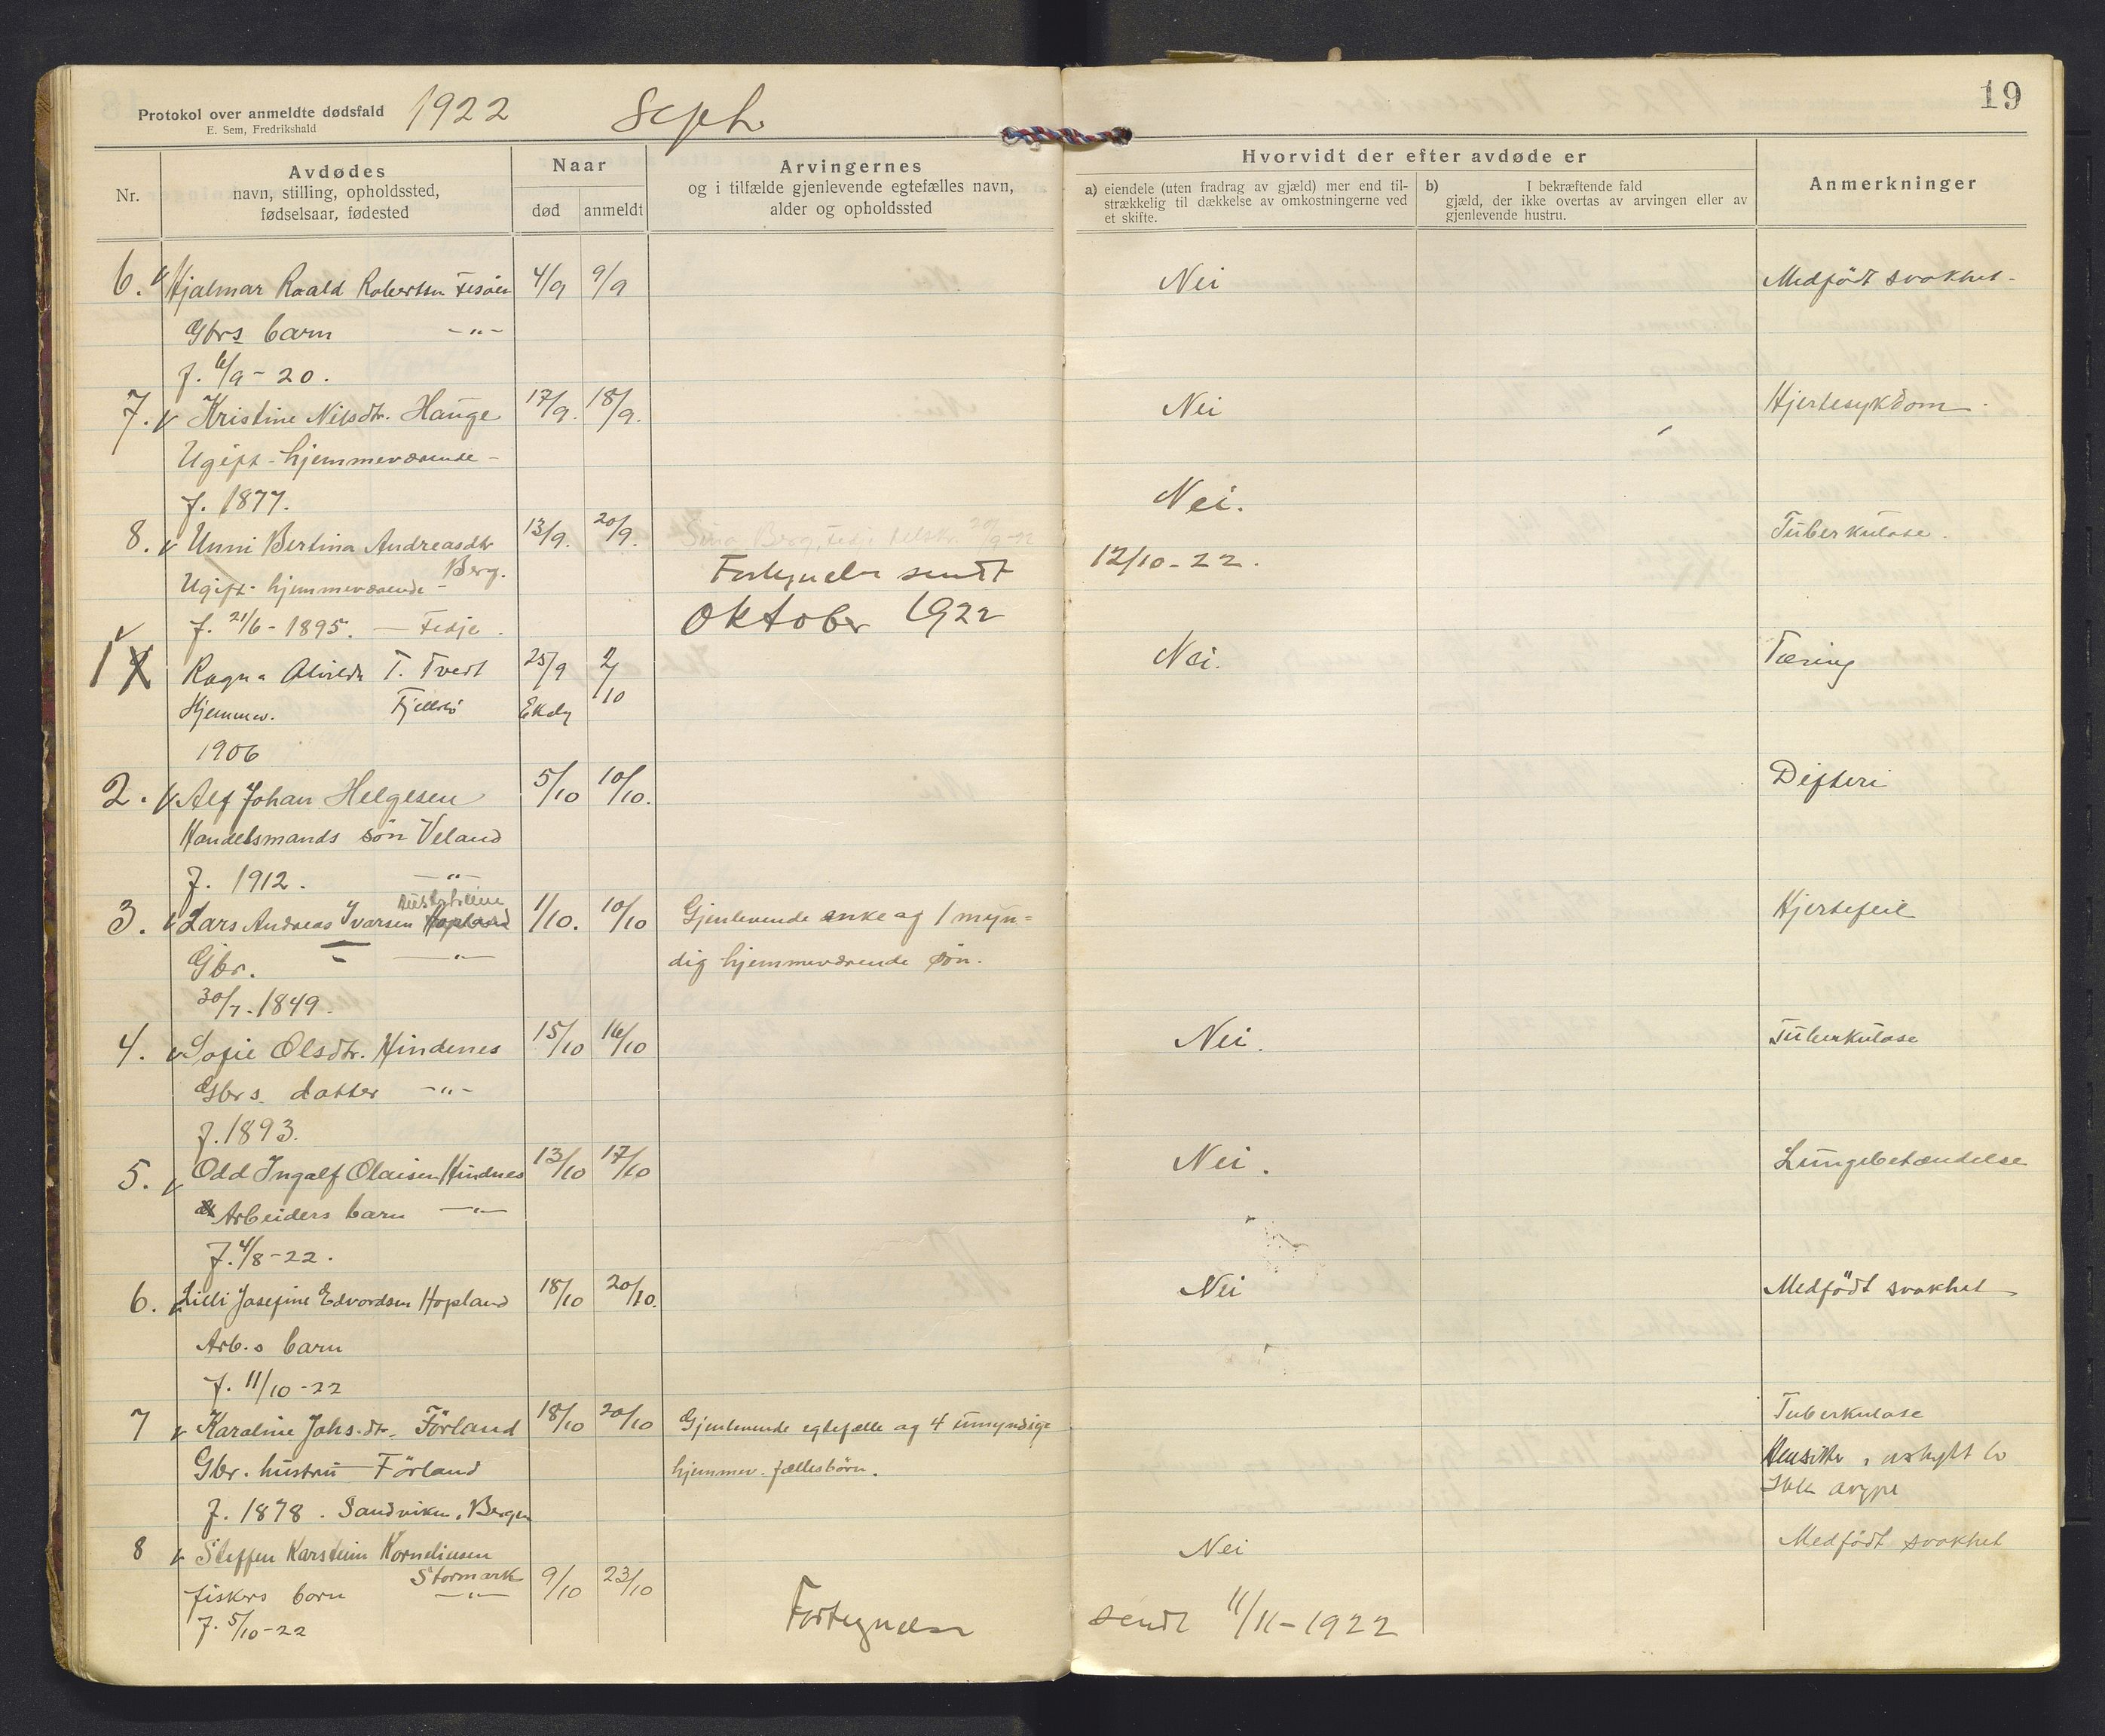 Protokol over anmeldte dødsfald 1922 Sept.
E. Sem, Fredrikshald
19
Nr.
Avdødes
navn, stilling, opholdssted,
fødselsaar, fødested
Naar
død anmeldt
Arvingernes
og i tilfælde gjenlevende egtefælles navn,
alder og opholdssted
Hvorvidt der efter avdøde er
a) eiendele (uten fradrag av gjæld) mer end til-
strækkelig til dækkelse av omkostningerne ved
et skifte.
b) I bekræftende fald
gjæld, der ikke overtas av arvingen eller av
gjenlevende hustru.
Anmerkninger
6. Hjalmar Roald Robertsen 4/9 9/9 Nei Medfödt svakhet
Gbrs barn -"-
f. 6/9-20.
7. Kristine Nilsdtr. Hauge 17/9. 18/9. Nei Hjertesykdom.
Ugift - hjemmeværende -
f. 1877.
Nei.
8. Unni Bertina Andreasdtr 13/9. 20/9. Berg, 20/9-22 Tuberkulose.
Berg.
Ugift - hjemmeværende -
Fortegnelse sendt 12/10-22.
f. 21/6-1895. — Fedje.
Oktober 1922
1 Ragna Alvilda T. Tveit 25/9 2/10 Nei. Tæring
Hjemmev. Fjellsbö
1906
2. Alf Johan Helgesen 5/10 10/10. Difteri
Handelsmands sön Veland
f. 1912. -"-
3. Lars Andreas Ivarsen Hopland 1/10. 10/10 Gjenlevende enke og 1 myn= Hjertefeil
Gbr. -"- dig hjemmeværende sön.
30/7.1849.
4. Sofie Olsdtr. Hindenes 15/10 16/10 Nei. Tuberkulose
Gbrs. datter -"-
f. 1893.
5. Odd Ingolf Olaisen Hindnes 13/10 17/10 Nei. Lungebetændelse
Arbeiders barn -"-
f. 4/8-22.
6. Lilli Josefine Edvardsen Hopland 18/10 20/10. Nei Medfödt svakhet
Arb.s barn
f. 11/10-22
7 Karoline Johs.dtr. Förland 18/10 20/10 Gjenlevende egtefælle og 4 umyndige Tuberkulose
Gbr. hustru Förland hjemmev. fællesbörn.
f. 1878. Sandviken, Bergen
8 Steffen Karsteim Korneliusen Nei Medfödt svakhet
Stormark
fiskers barn -"- 9/10 23/10
f. 5/10-22
Fortegnelse sendt 11/11-1922